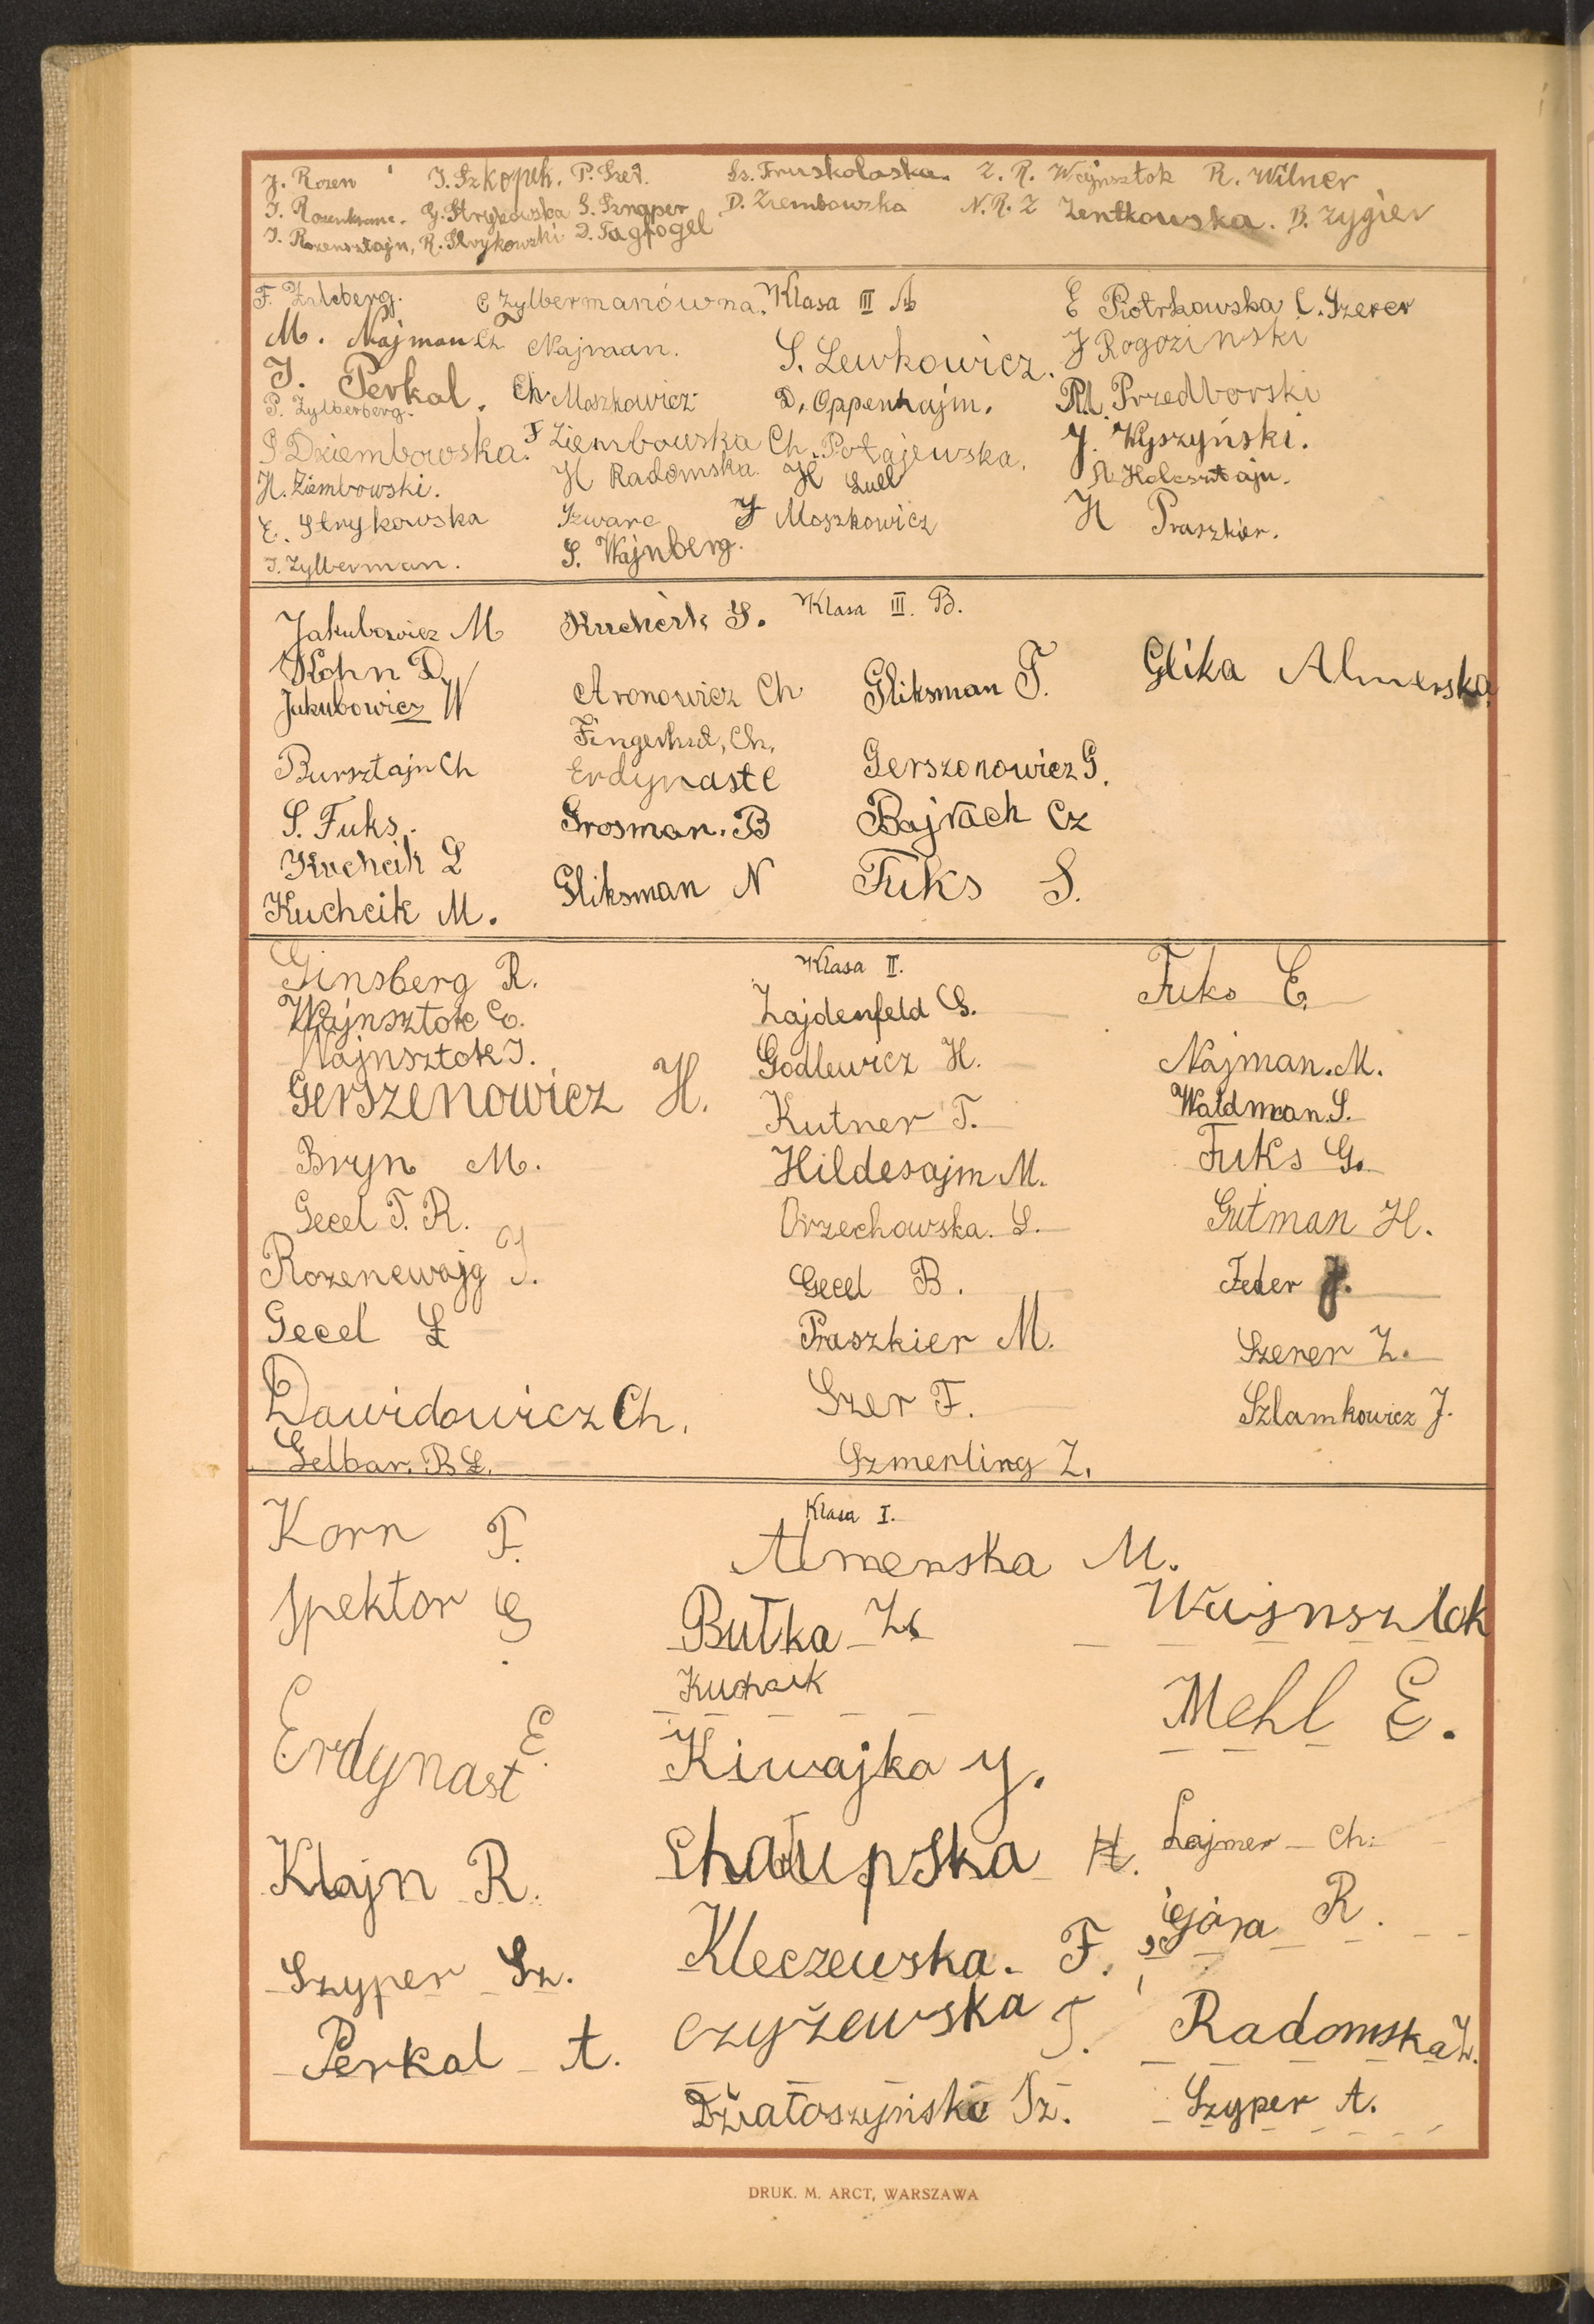 J. Rozen J. Szkopek. P. Szet. Sz. Fruskolaska. Z. R. Wajnsztok R. Wilner
J. Rozenkranc. G. Strykowska S. Sznaper D. Ziembowska N. R. Z Zentkowska. B. Zygier
J. Rozensztajn, R. Strykowski D. Tagfogel
F. Zylberg. C Zylbermanówna. Klasa III A E Piotrkowska C. Szerer
M. Najman Cz Najman. S. Lewkowicz. J Rogozinski
J. Perkal. Ch Moszkowicz D. Oppenhajm. M. Przedborski
P. Zylberberg.
P Dziembowska. F Ziembowska Ch. Potajewska. J. Wyszyński.
H. Ziembowski. H Radomska. H Lull Holcsztajn.
E. Strykowska Szwarc J Moszkowicz H Praszkier.
J. Zylberman. S. Wajnberg.
Jakubowicz M Kuchcik S. Klasa III. B.
Kohn D. Glika Almerska
Jakubowicz W Aronowicz Ch Gliksman F.
Fingerhut, Ch.
Bursztajn Ch Erdynast C Gerszonowicz G.
S. Fuks. Grosman. B Bajrach Cz
Kuchcik L
Kuchcik M. Gliksman N Fuks S.
Ginsberg R. Klasa II. Fuks E.
Wajnsztok C. Zajdenfeld S.
Wajnsztok J. Godlewicz H. Najman. M.
Gerszenowicz H. Kutner T. Waldman. S.
Bryn M. Hildesajm M. Fuks G.
Gecel T. R. Orzechowska. S. Gutman H.
Rozencwajg J. Gecel B. Feder J.
Gecel Ł Praszkier M. Szerer Z.
Dawidowicz Ch. Szer F. Szlamkowicz J.
Gelbar. B S. Szmerling Z.
Korn F. Klasa I.
Almerska M.
Spektor G. Butka Z. Wajnsztok
Kuchcik
Erdynast E. Kiwajko y. Mehl E.
Klajn R. Chałupska H. Lajmer Ch.
Szyper Sz. Kleczewska. F. Góra R.
Perkal A. Czyżewska T. Radomska Z.
Działoszyński Sz. Szyper A.
DRUK. M. ARCT, WARSZAWA